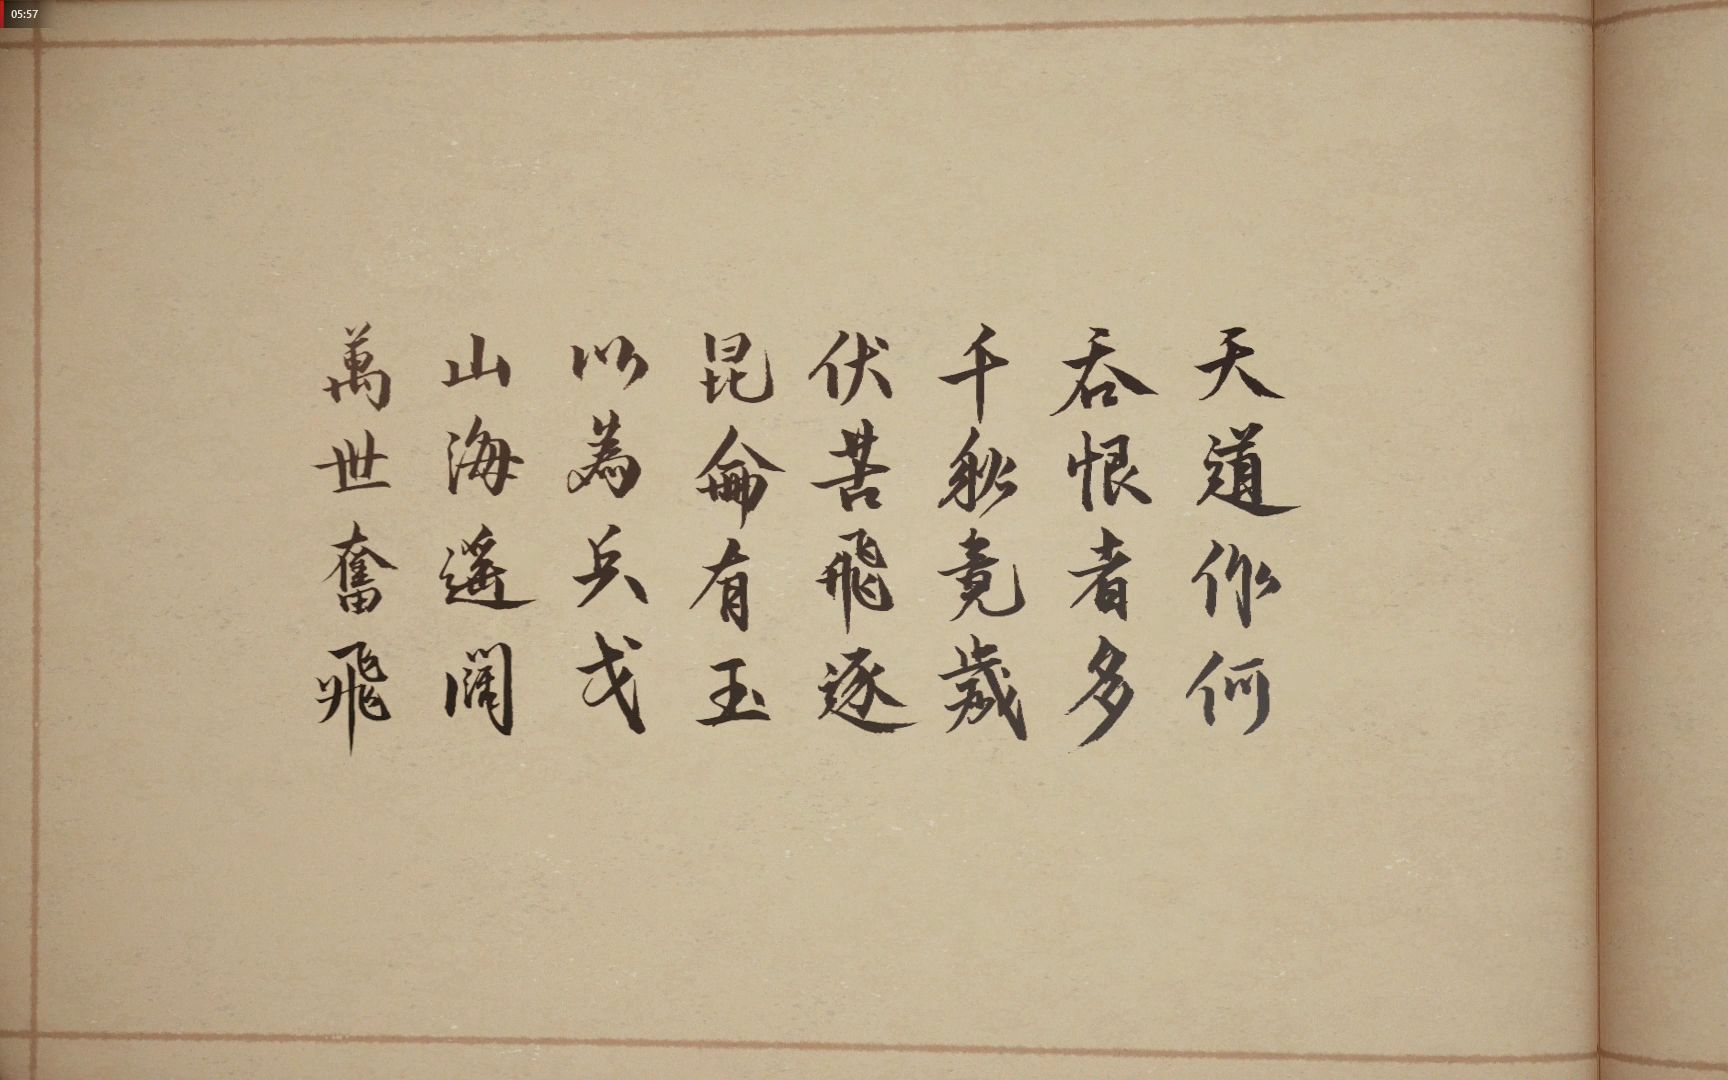 05:57
天道你何
吞恨者多
千秋竟歲
伏苦飛逐
昆侖有玉
以為兵戈
山海遥闊
萬世奮飛